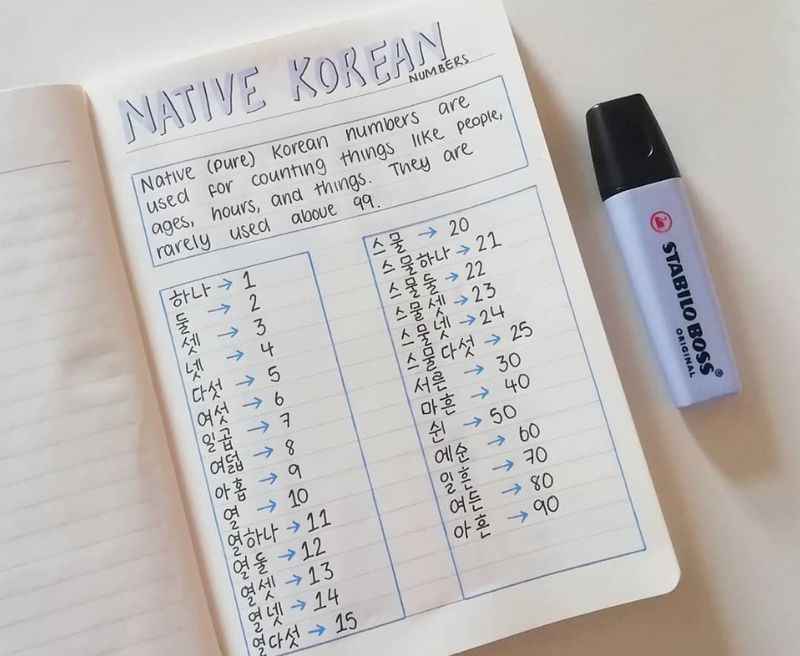 NATIVE KOREAN
NUMBERS
Native (pure) Korean numbers are
used for counting things like people,
ages, hours, and things. They are
rarely used above 99.
하나 → 1
둘 → 2
셋 → 3
넷 → 4
다섯 → 5
여섯 → 6
일곱 → 7
여덟 → 8
아홉 → 9
열 → 10
열하나 → 11
열둘 → 12
열셋 → 13
열넷 → 14
열다섯 → 15
스물 → 20
스물하나 → 21
스물둘 → 22
스물셋 → 23
스물넷 → 24
스물다섯 → 25
서른 → 30
마흔 → 40
쉰 → 50
예순 → 60
일흔 → 70
여든 → 80
아흔 → 90
STABILO BOSS®
ORIGINAL